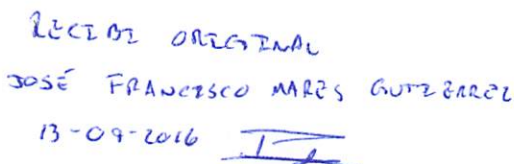 RECIBI ORIGINAL
JOSÉ FRANCISCO MARES GUTIERREZ
13-09-2016